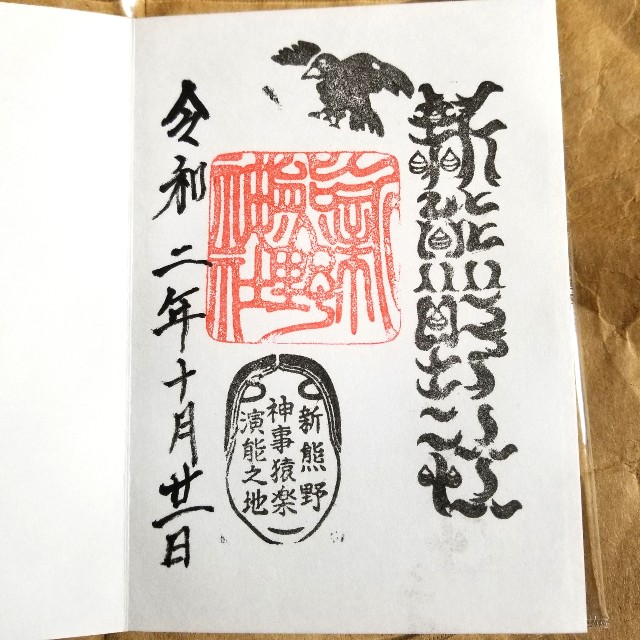 新熊野社
新熊野神社
新熊野
神事猿楽
演能之地
令和二年十月廿一日